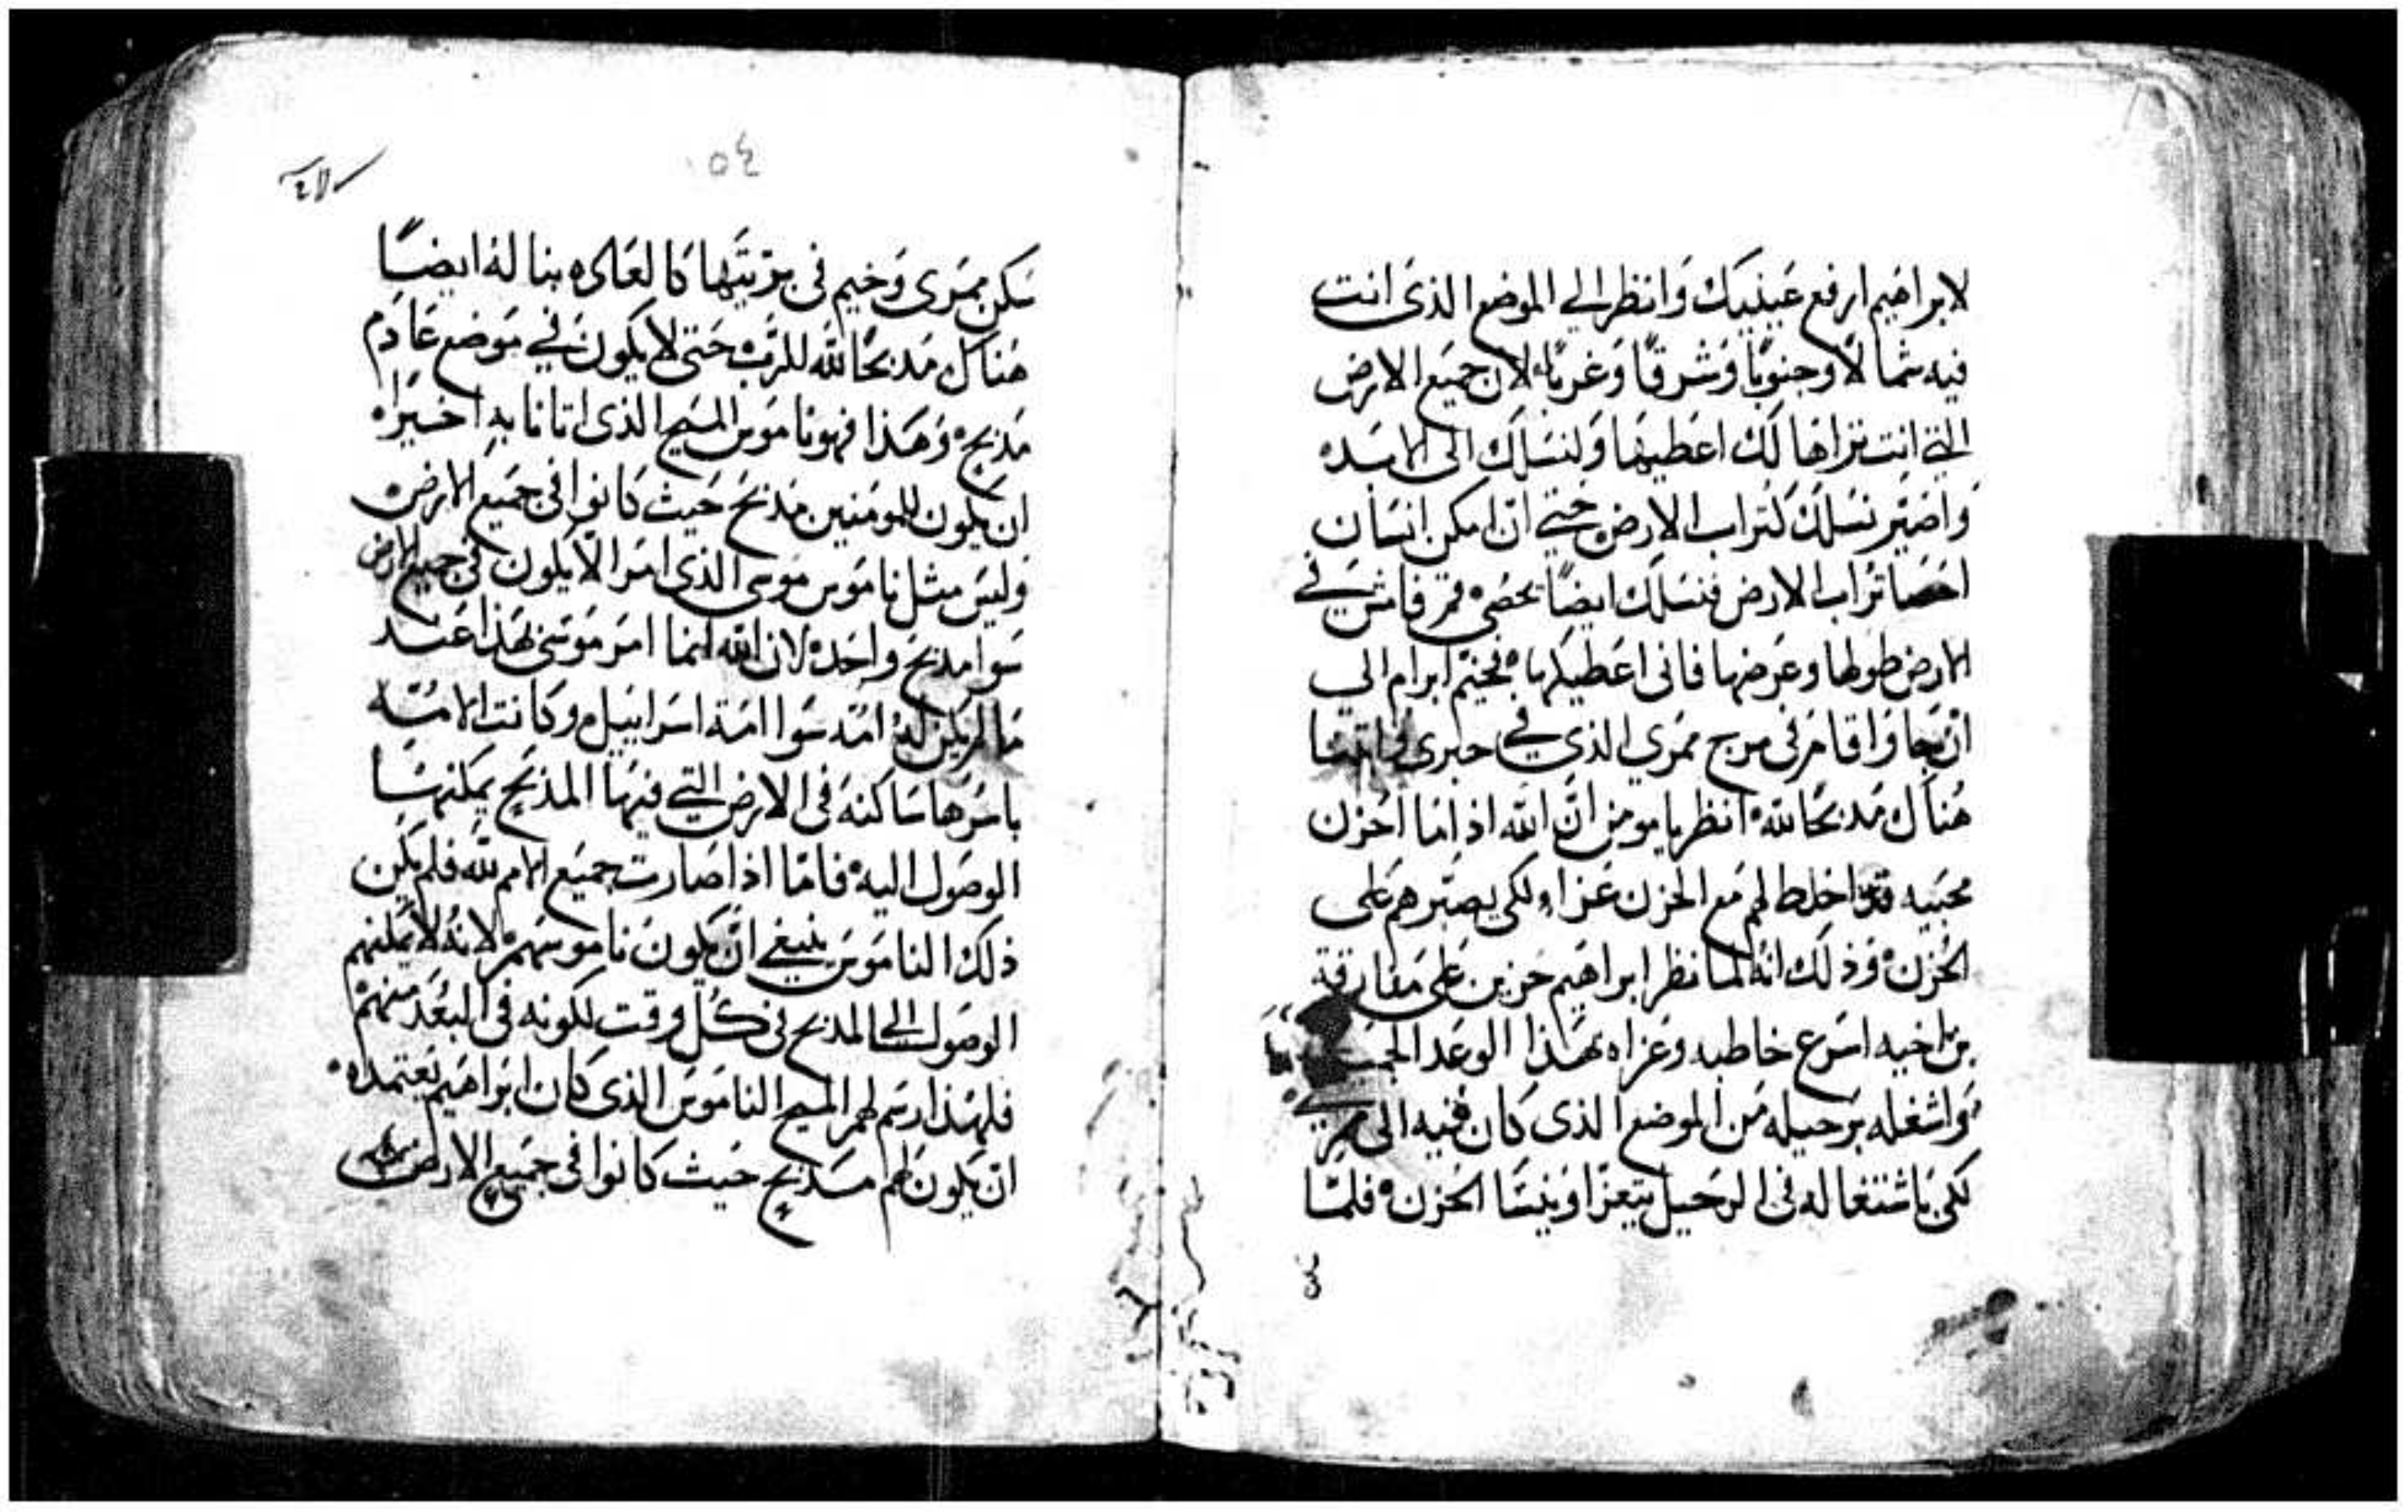 لابراهيم ارفع عينيك وانظر الي الموضع الذى انت
فيه شمالاً وجنوبًا وشرقًا وغربًا لان جميع الارض
التي انت تراها لك اعطيها ولنسلك الى الابد
واصير نسلك كتراب الارض حتي ان امكن انسان
احصا تراب الارض فنسلك ايضًا يحصى قم فامشي في
الارض طولها وعرضها فانى اعطيكها فخيم ابرام الي
ان جا واقام فى مرج ممري الذي في حبرى وابتنا
هناك مدبحًا لله انظر يا مومن ان الله اذا ما احزن
محبيه قد اخلط لهم مع الحزن عزاء لكى يصبرهم على
الحزن وذلك انه لما نظر ابراهيم حزين على مفارقة
بن اخيه اسرع خاطبه وعزاه بهذا الوعد
واشغله برحيله من الموضع الذى كان فيه الى
لكى باشتغاله فى الرحيل يتعزا وينسا الحزن فلما
١٥٤
سكن ممرى وخيم فى بريتها كالعاده بنا له ايضًا
هناك مدبحًا لله للرب حتى لا يكون في موضع عادم
مذبح وهذا فهو ناموس المسيح الذى اتانا به اخيرا
ان يكون للمومنين مذبح حيث كانوا فى جميع الارض
وليس مثل ناموس موسى الذى امر الا يكون فى جميع الارض
سوا مذبح واحد لان الله انما امر موسى بهذا عند
ما لم يكن له امه سوا امة اسراييل وكانت الامه
باسرها ساكنه فى الارض التي فيها المذبح يمكنها
الوصول اليه فاما اذا صارت جميع الامم لله فلم يكن
ذلك الناموس ينبغي ان يكون ناموسهم لانه لا يمكنهم
الوصول الى المذبح فى كل وقت لكونه فى البعد منهم
فلهذا رسم لهم المسيح الناموس الذى كان ابراهيم يعتمده
ان يكون لهم مذبح حيث كانوا فى جميع الارض